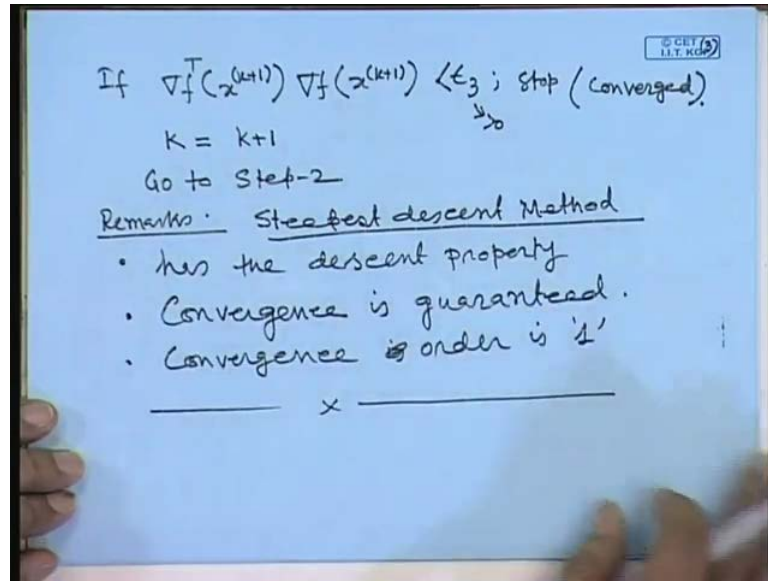 © CET
I.I.T. KGP
If ∇f^T(x^(k+1)) ∇f(x^(k+1)) < ε3 ; stop (converged).
→ >0
K = k+1
Go to Step-2
Remarks. Steepest descent Method
• has the descent property
• Convergence is guaranteed.
• Convergence order is '1'
x